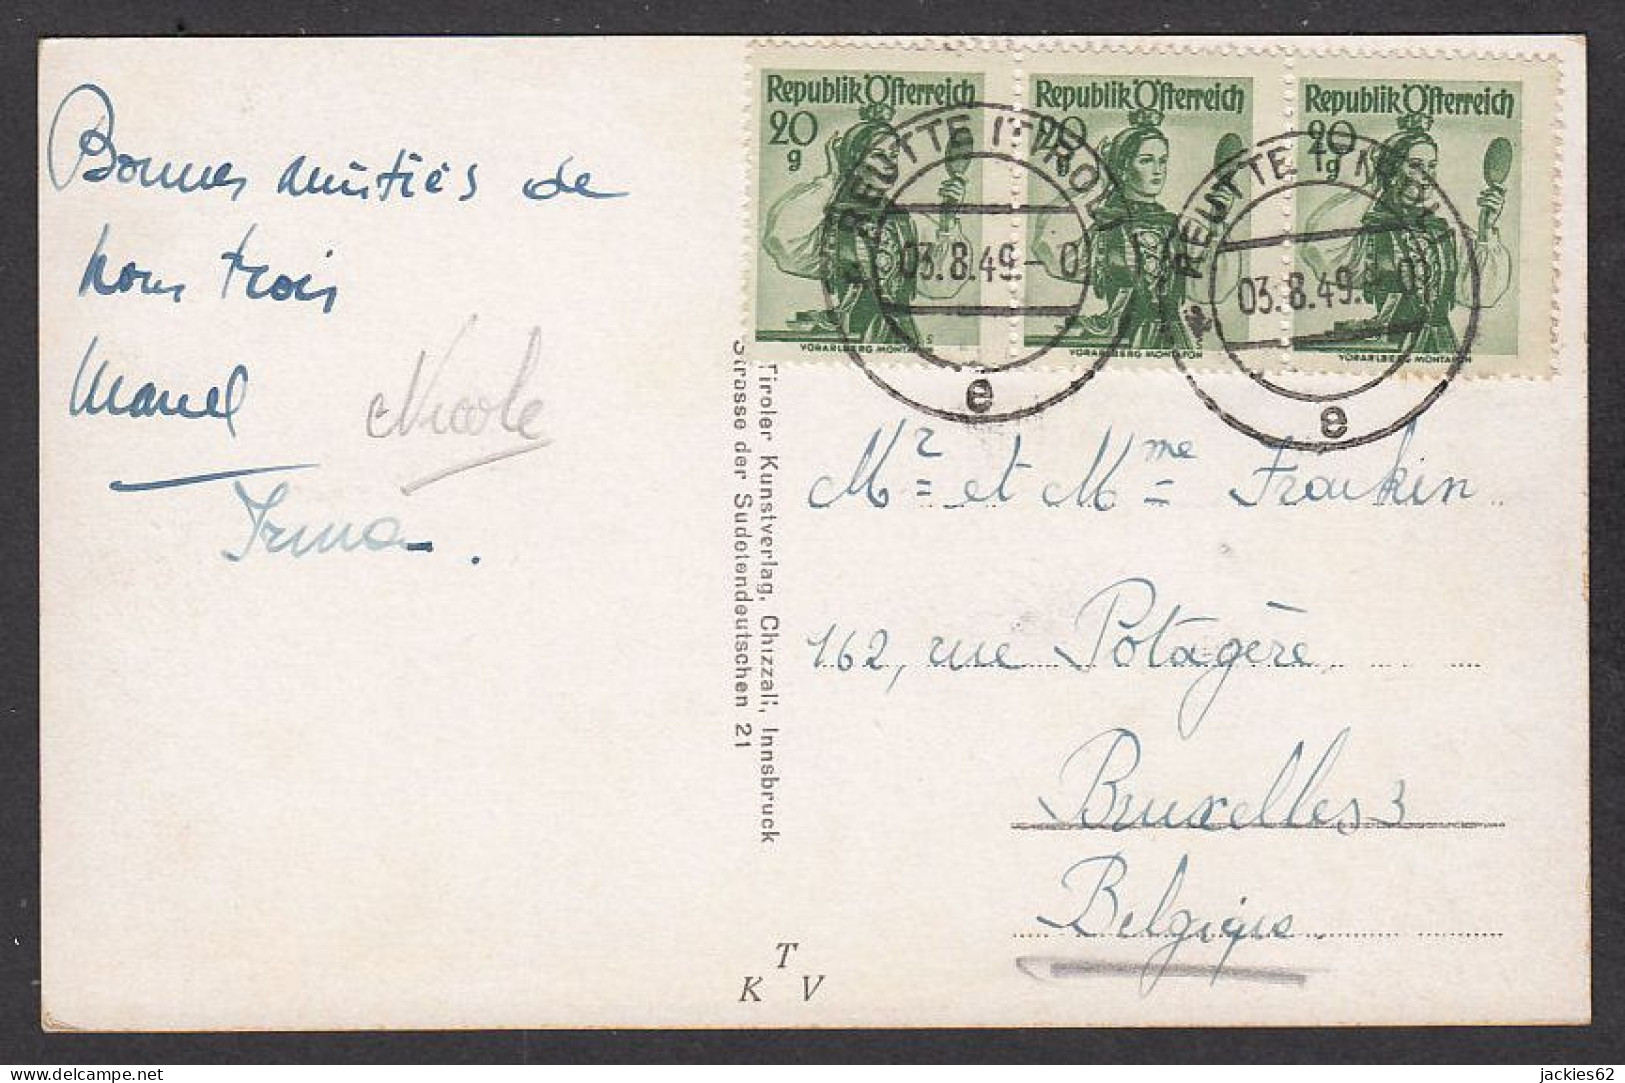 Bonnes amitiés de
nous trois
Marcel
Nicole
Irma.
Tiroler Kunstverlag, Chizzali, Innsbruck
Strasse der Sudetendeutschen 21
T
K V
Republik Österreich
20
g
VORARLBERG MONTAFON
Republik Österreich
20
g
VORARLBERG MONTAFON
Republik Österreich
20
g
VORARLBERG MONTAFON
REUTTE (TIROL)
03.8.49.-0
e
REUTTE (TIROL)
03.8.49.-0
e
Mr et Mme Frankin
162, rue Potagère
Bruxelles 3
Belgique
jackies62